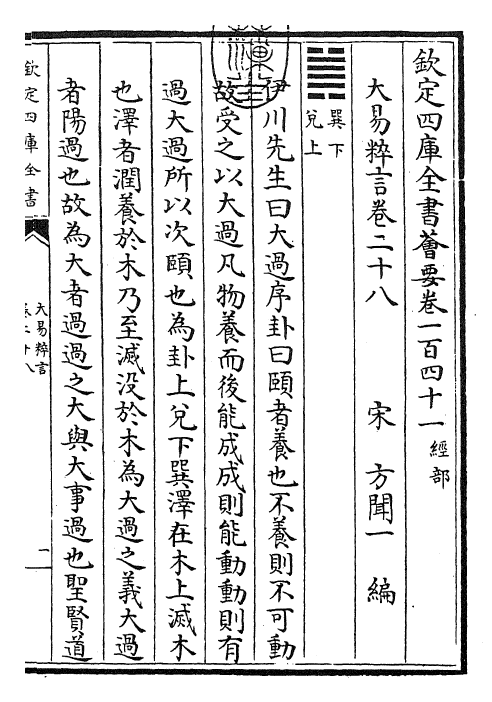 欽定四庫全書薈要卷一百四十一經部
大易粹言卷二十八 宋 方聞一 編
巽下
兌上
伊川先生曰大過序卦曰頤者養也不養則不可動
故受之以大過凡物養而後能成成則能動動則有
過大過所以次頤也為卦上兌下巽澤在木上滅木
也澤者潤養於木乃至滅没於木為大過之義大過
者陽過也故為大者過過之大與大事過也聖賢道
欽定四庫全書
大易粹言
卷二十八
一